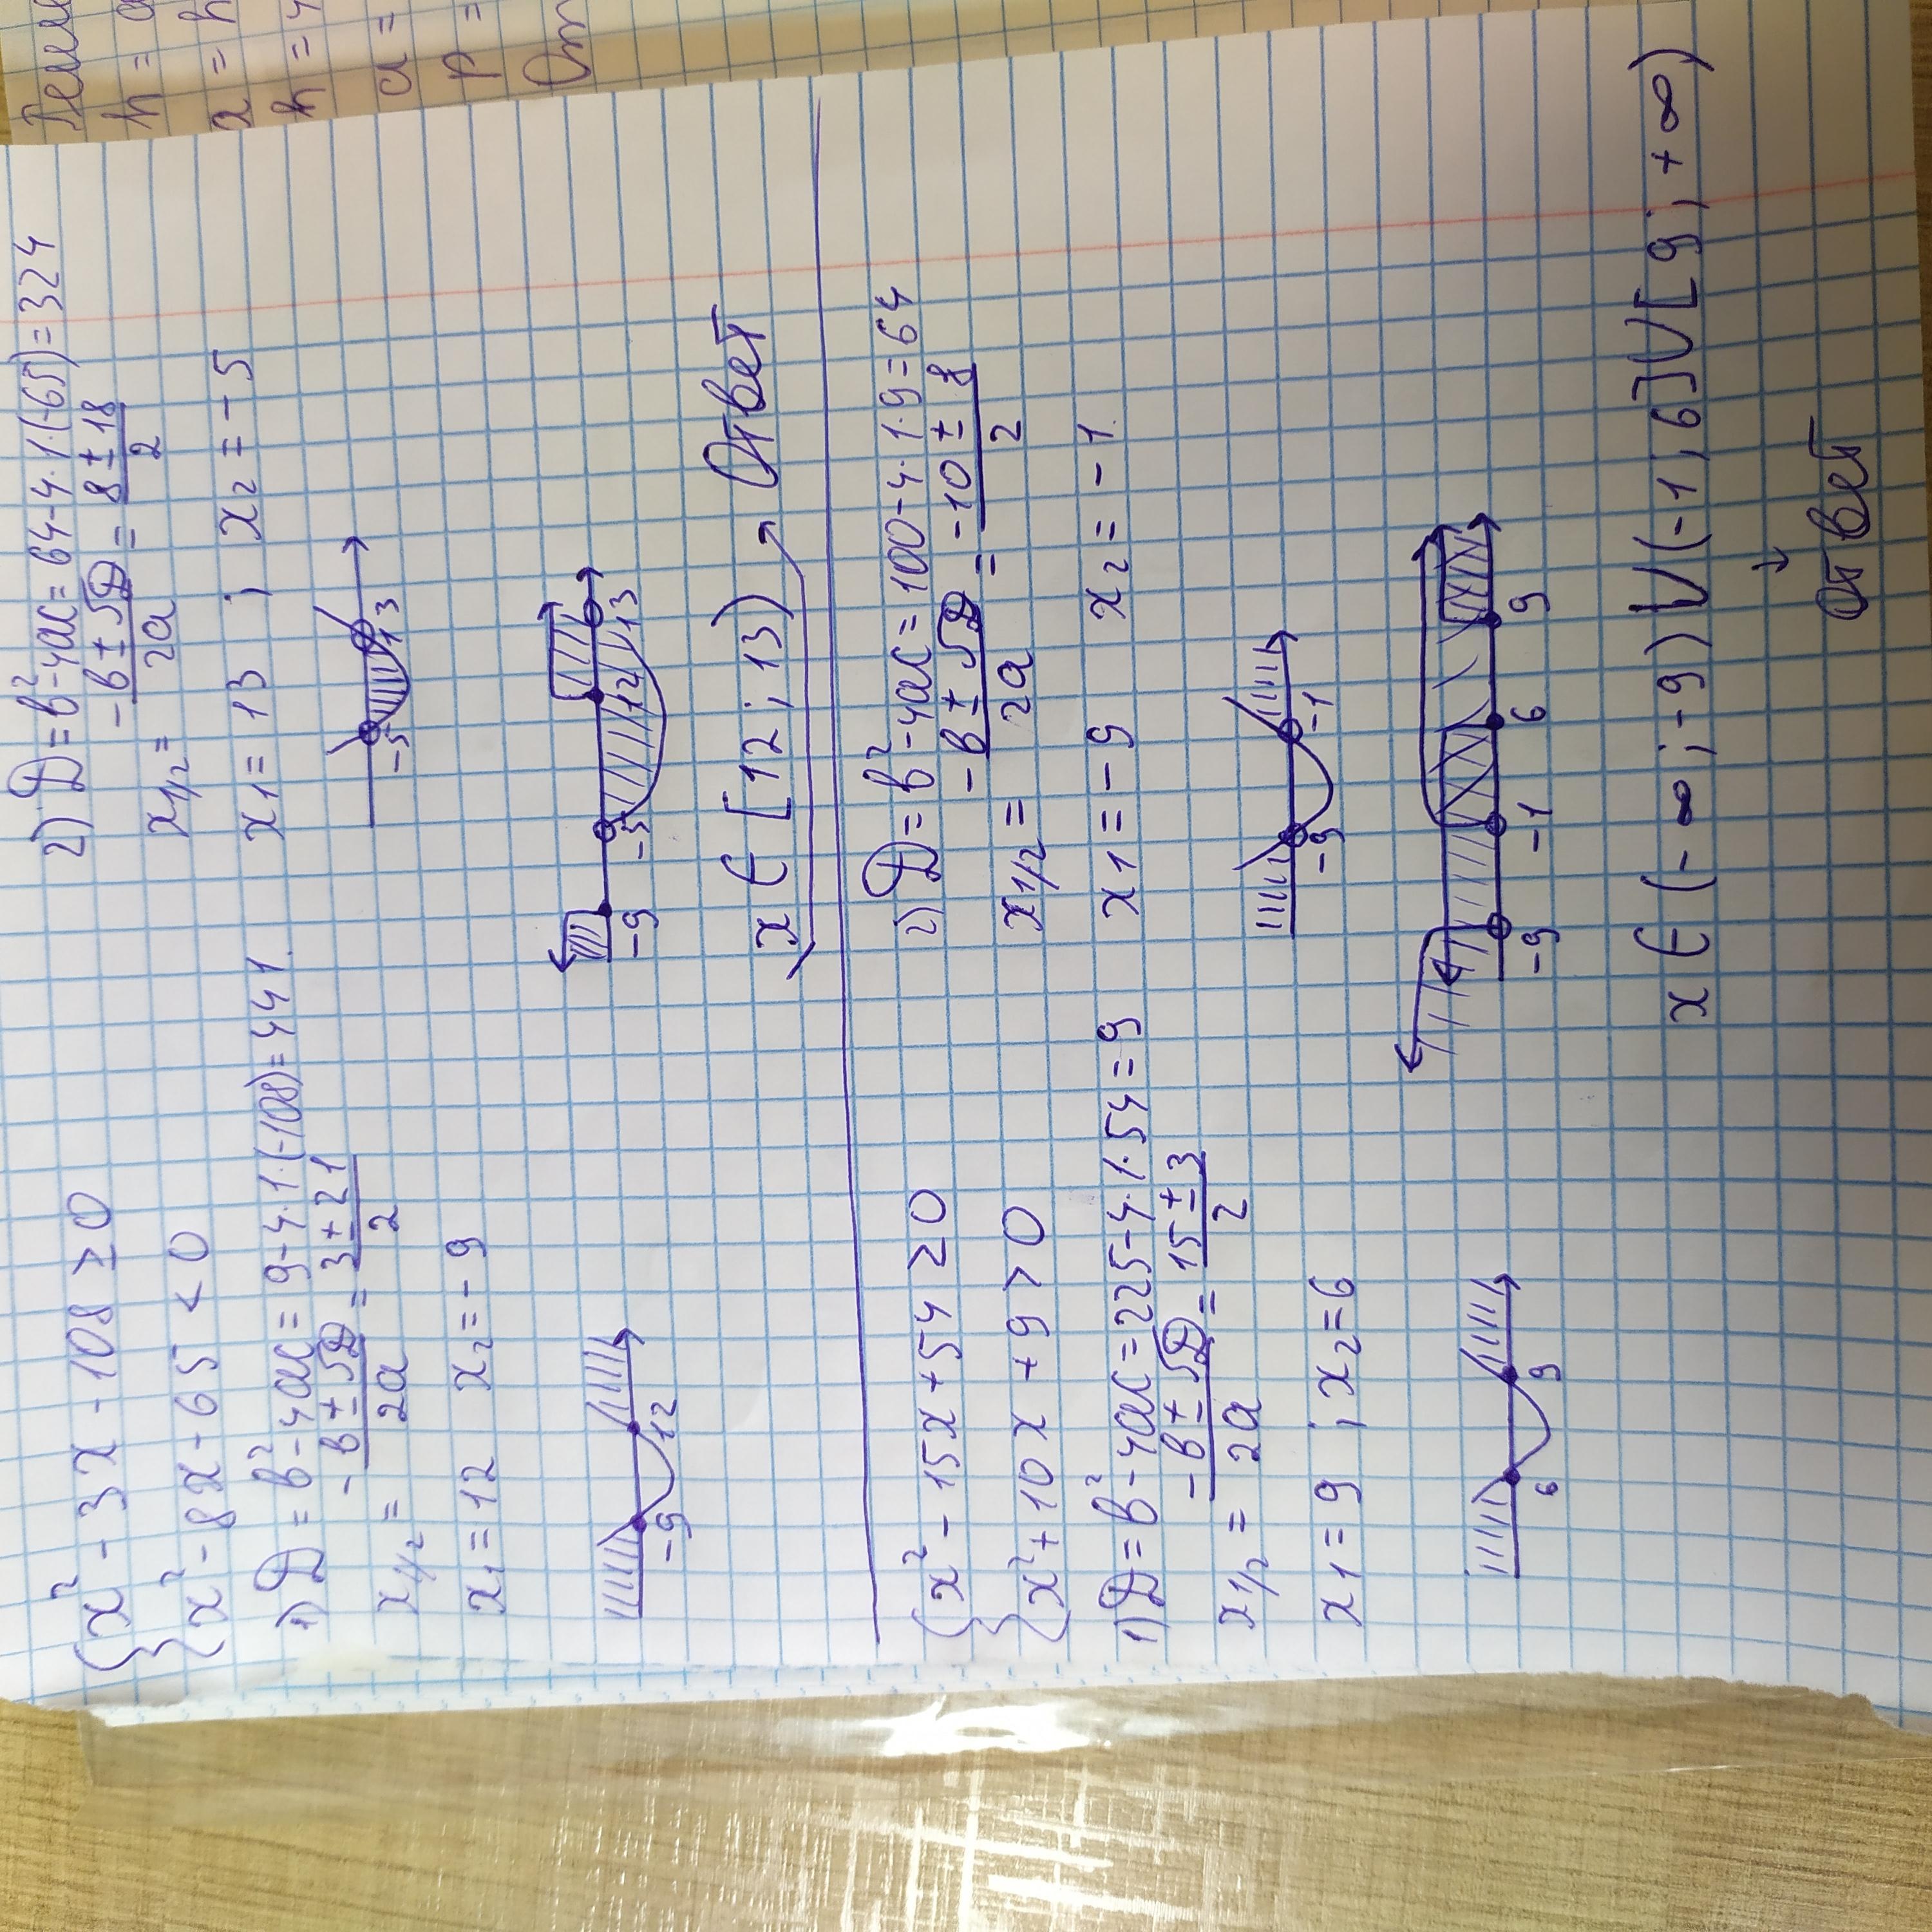 { x² - 3x - 108 ≥ 0
{ x² - 8x - 65 < 0
1) D = b² - 4ac = 9 - 4·1·(-108) = 441
x1/2 = (-b ± √D)/2a = (3 ± 21)/2
x1 = 12 x2 = -9
-9 12
2) D = b² - 4ac = 64 - 4·1·(-65) = 324
x1/2 = (-b ± √D)/2a = (8 ± 18)/2
x1 = 13 ; x2 = -5
-5 13
-9 -5 12 13
x ∈ [12 ; 13) Ответ
{ x² - 15x + 54 ≥ 0
{ x² + 10x + 9 > 0
1) D = b² - 4ac = 225 - 4·1·54 = 9
x1/2 = (-b ± √D)/2a = (15 ± 3)/2
x1 = 9 ; x2 = 6
6 9
2) D = b² - 4ac = 100 - 4·1·9 = 64
x1/2 = (-b ± √D)/2a = (-10 ± 8)/2
x1 = -9 x2 = -1
-9 -1
-9 -1 6 9
x ∈ (-∞ ; -9) U (-1 ; 6] U [9 ; +∞)
Ответ
h =
a = h
h = 4
a =
p =